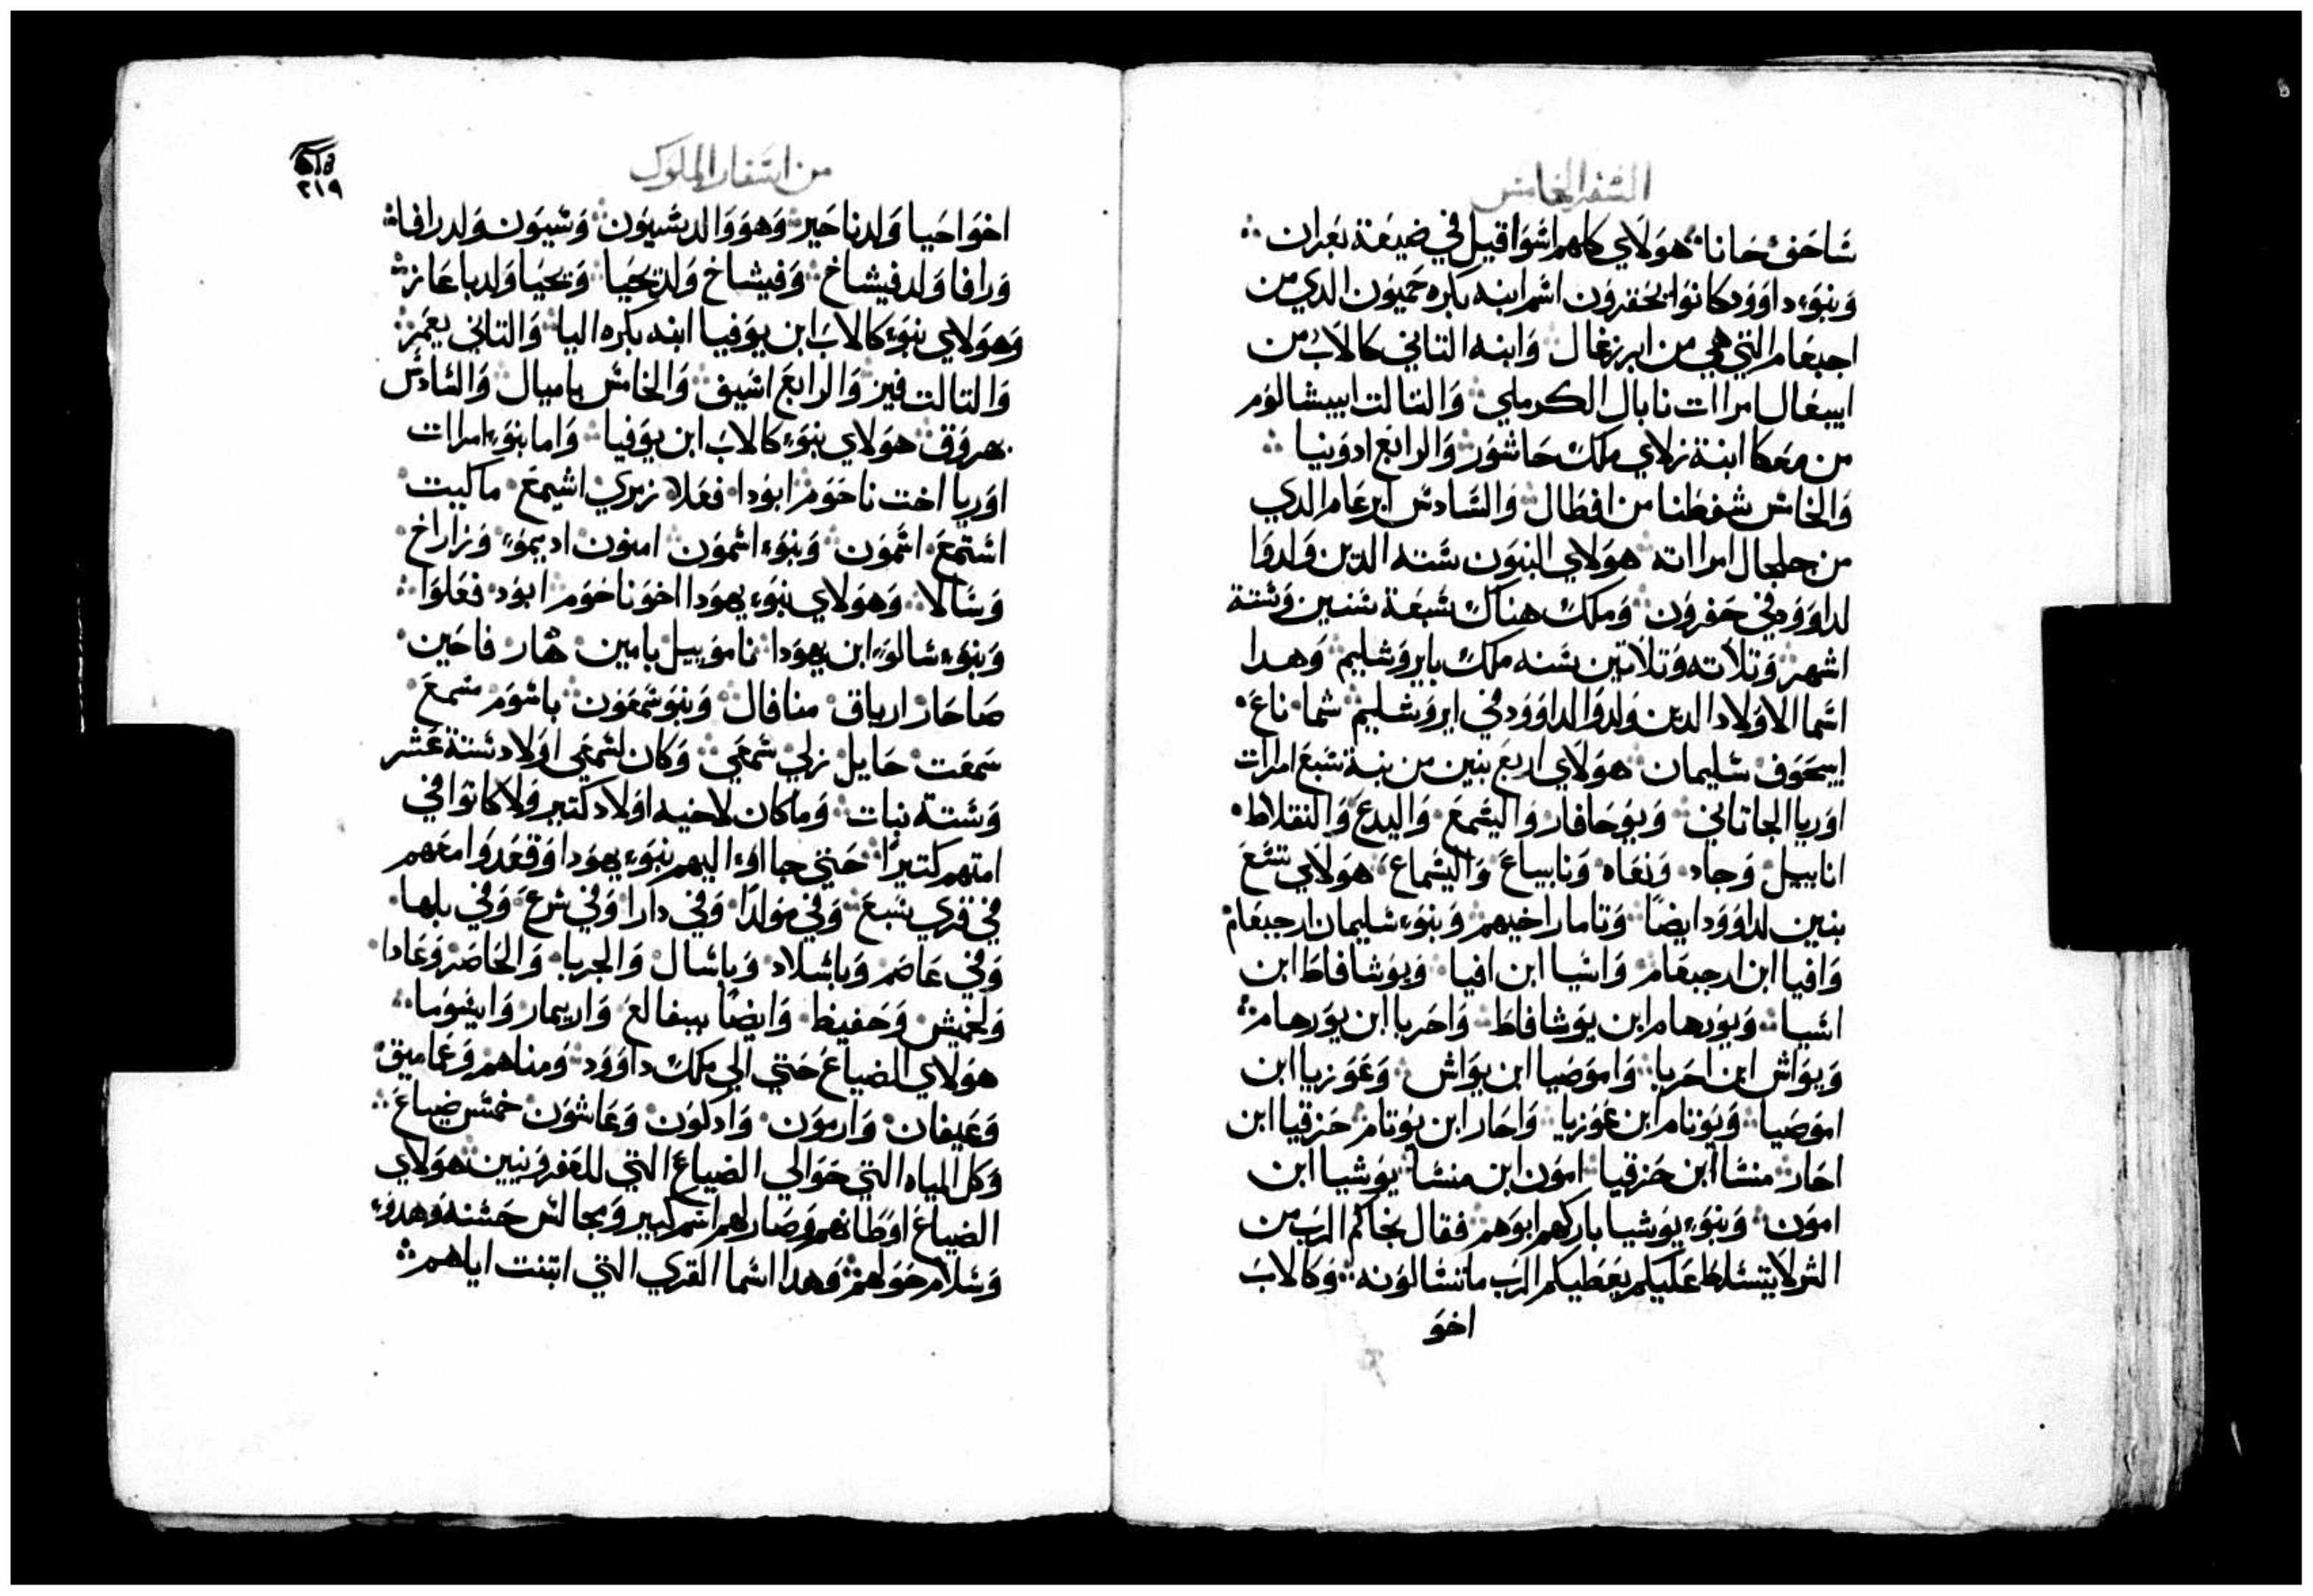 السفر الخامس
شاحف حانا هولاي كلهم اشوا قيل في ضيعة بعران
وبنوء داوود كانوا بحفرون اسم ابنه بكره حميون الدي من
اجبعام التي هي من ابرزغال وابنه التاني كالاب من
ابيغال امراات نابال الكرملي والتالت ابيشالوم
من معكا ابنة زلاي ملك حاشور والرابع ادونيا
والخامس شفطنا من افطال والسادس ابرعام الدي
من جلجال امراته هولاي البنون سته الدين ولدوا
لداوود في حفرون وملك هناك سبعة سنين وستة
اشهر وتلاته وتلاتين سنه ملك بايروشليم وهدا
اسما الاولاد الدين ولدوا لداوود في ايروشليم شما ناع
ايبحوف سليمان هولاي اربع بنين من بنة سبع امرات
اوريا الجاتاني ويوحافار واليشمع واليدع والنقلاط
انابييل وجاد ونغاه ونابياع واليشماع هولاي تسع
بنين لداوود ايضا وتامار اخيهم وبنوء سليمان ارجبعام
وافيا ابن ارجبعام واشيا ابن افيا ويوشافاط ابن
اشيا ويورهام ابن يوشافاط واحريا ابن يورهام
ويواش ابن احريا واموصيا ابن يواش وعوزيا ابن
اموصيا ويوتام ابن عوزيا واحار ابن يوتام حزقيا ابن
احار منسا ابن حزقيا امون ابن منسا يوشيا ابن
امون وبنوء يوشيا باركهم ابوهم فقال نجاكم الرب من
الشر لا يتسلط عليكم يعطيكم الرب ما تسالونه وكالاب
اخو
من اسفار الملوك
٢١٩
اخو احيا ولد ناحير وهو والد بشيون وشيون ولد رافا
ورافا ولد فيشاخ وفيشاخ ولد يحيا ويحيا ولد باعاز
وهولاي بنوء كالاب ابن يوفيا ابنه بكره اليا والتاني يعمر
والتالت فيز والرابع اشيف والخامس ياميال والسادس
هروق هولاي بنوء كالاب ابن يوفيا واما بنوء امرات
اوريا اخت ناحوم ابودا فعلا زمري اشيمع ماكيت
استمع اشمون وبنوء اشمون امنون اديموء وزاراخ
وسالا وهولاي بنوء يهودا اخو ناحوم ابود فعلوا
وبنوء شالوء ابن يهودا ناموييل يامين هار فاحين
صاحار ارياق منافال وبنو شمعون باشوم مسمع
سمعت حايل زلي شمعي وكان لشمعي اولاد ستة عشر
وستة نبات وما كان لاخيه اولاد كتير ولا كانوا في
امتهم كتيرا حتي جااوء اليهم بنوء يهودا وقعدوا معهم
في قري سبع وفي مولدا وفي دارا وفي شرع وفي بلها
وفي عاصم وباشلاد وباشال والجربا والخاصر وعادا
ولخيش وحفيظ وايضا ببيفالع واريمار وايغوما
هولاي الضياع حتي الي ملك داوود ومناهم وعاميق
وعيفان وارمون وادكون وعاشون خمس ضياع
وكل المياه التي حوالي الضياع التي للعفرونيين هولاي
الضياع اوطانهم وصار لهم اسم كبير ومجالس حسنه وهدوء
وسلام حولهم وهدا اسما القري التي ابتنت اياهم